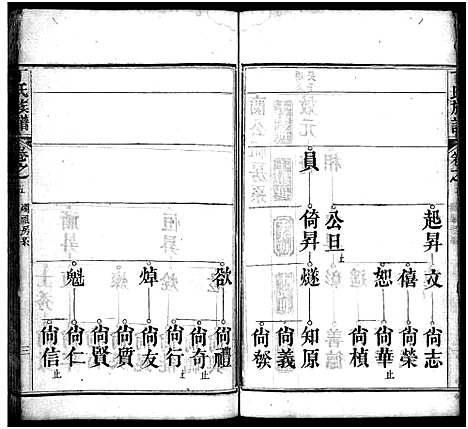 員
起昇 公旦止 倚昇
文 僖 恕 燧
尚志 尚榮 尚華止 尚楨 知原 尚義
欲 焯 魁
尚禮 尚奇止 尚行止 尚友 尚質 尚賢 尚仁 尚信止
氏族譜 卷之五
三